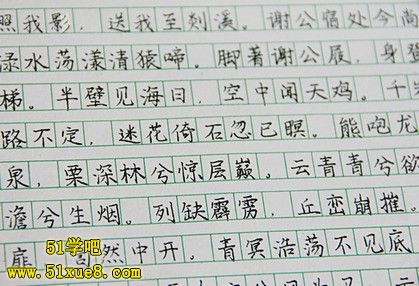 照我影，送我至剡溪。谢公宿处今尚
渌水荡漾清猿啼。脚著谢公屐，身登
梯。半壁见海日，空中闻天鸡。千
路不定，迷花倚石忽已暝。熊咆龙
泉，栗深林兮惊层巅。云青青兮欲
澹兮生烟。列缺霹雳，丘峦崩摧。
扉，訇然中开。青冥浩荡不见底
51学吧
www.51xue8.com